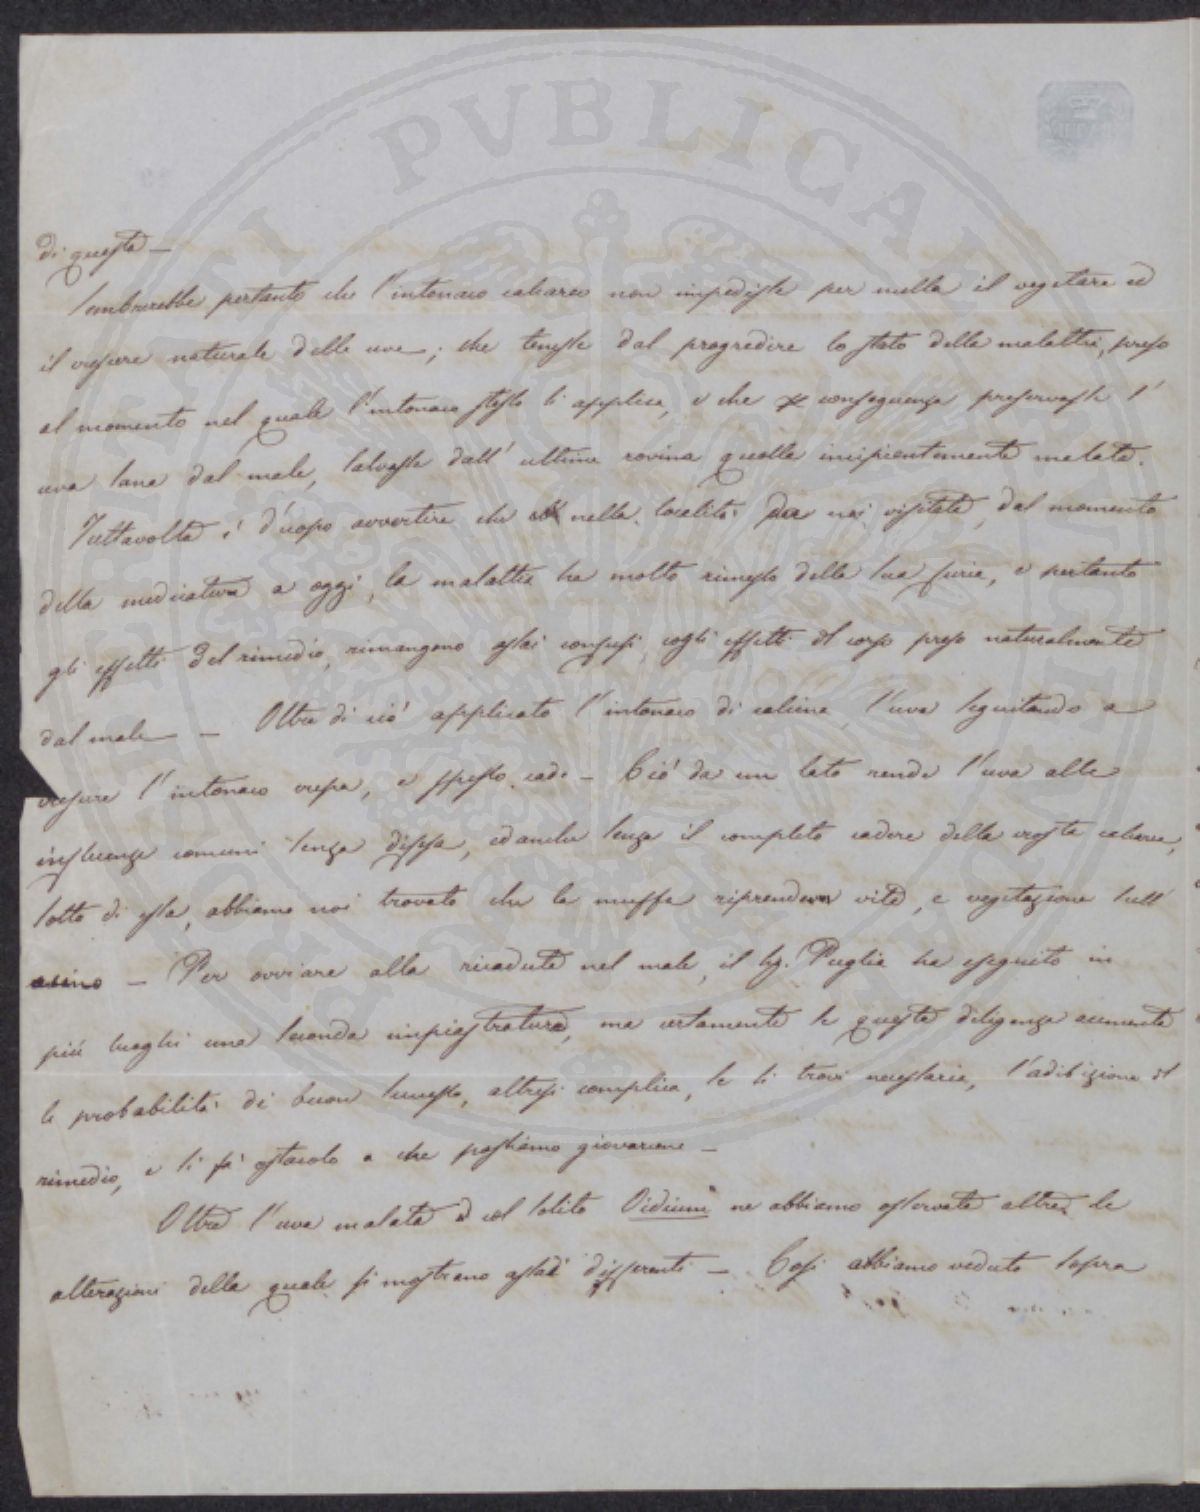 di questa —
Sembrerebbe pertanto che l'intonaco calcareo non impedisse per nulla il vegetare ed
il crescere naturale delle uve; che tenesse dal progredire lo stato della malattia, preso
al momento nel quale l'intonaco stesso si applica, e che per conseguenza preservasse l'
uva sana dal male, salvasse dall'ultima rovina quella incipientemente malata.
Tuttavolta è d'uopo avvertire che nelle località da noi visitate, dal momento
della medicatura a oggi, la malattia ha molto rimesso della sua furia, e pertanto
gli effetti del rimedio rimangono assai confusi cogli effetti del corso preso naturalmente
dal male — Oltre di ciò applicato l'intonaco di calcina, l'uva seguitando a
crescere l'intonaco crepa, e spesso cade — Ciò da un lato rende l'uva alle
influenze comuni senza difesa, ed anche senza il completo cadere della crosta calcarea,
sotto di essa, abbiamo noi trovato che la muffa riprendeva vita, e vegetazione sull'
acino — Per ovviare alla ricaduta nel male, il Sig. Puglia ha eseguito in
più luoghi una seconda impiastratura, ma certamente se questa diligenza aumenta
le probabilità di buon successo, altresì complica, se si trovi necessaria, l'adibizione del
rimedio, e si fà ostacolo a che possiamo giovarcene —
Oltre l'uva malata col solito Oidium ne abbiamo osservata altra, le
alterazioni della quale si mostrano assai differenti — Così abbiamo veduto sopra
PUBLICAE